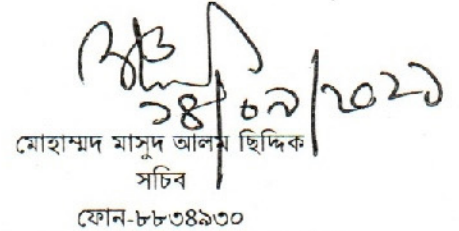 ১৪/০৯/২০২১
মোহাম্মদ মাসুদ আলম ছিদ্দিক
সচিব
ফোন-৮৮৩৪৯৩০